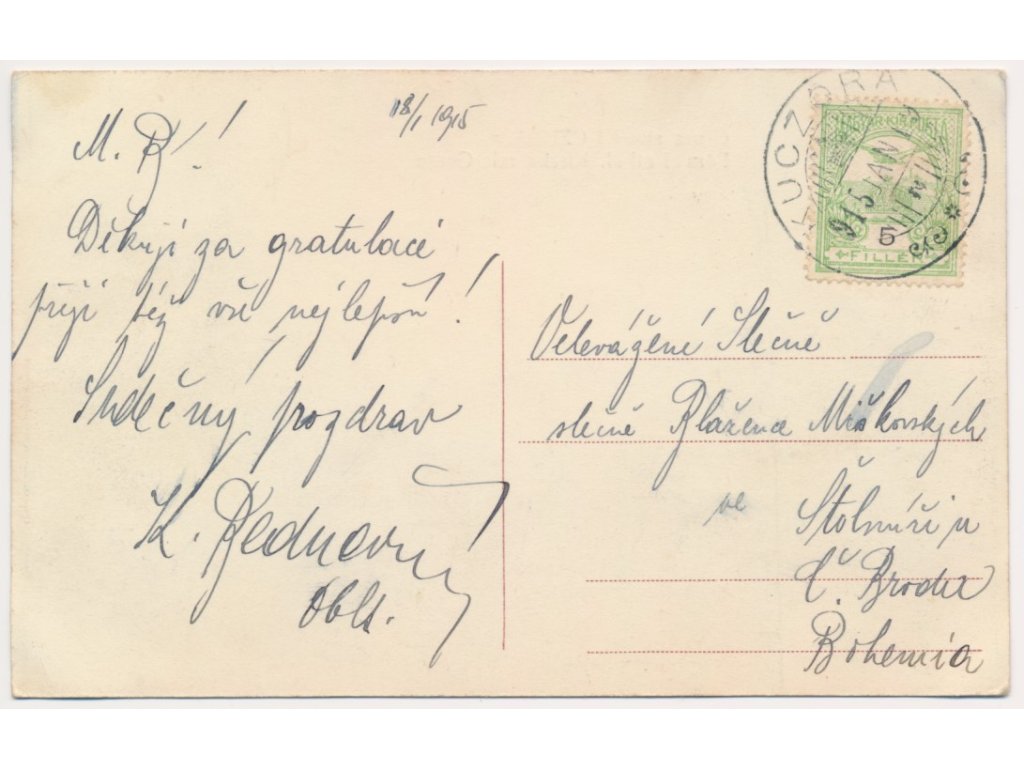 18/1 1915
M. B.!
Děkuji za gratulaci
přeji též vše nejlepší!
Srdečný pozdrav
K.
Oblt.
KUCZORA
915 JAN
MAGYAR KIR. POSTA
5
FILLÉR
Velevážené Slečně
slečně Blažence Miškovských
ve Štolmíři u
Č. Brodu
Bohemia